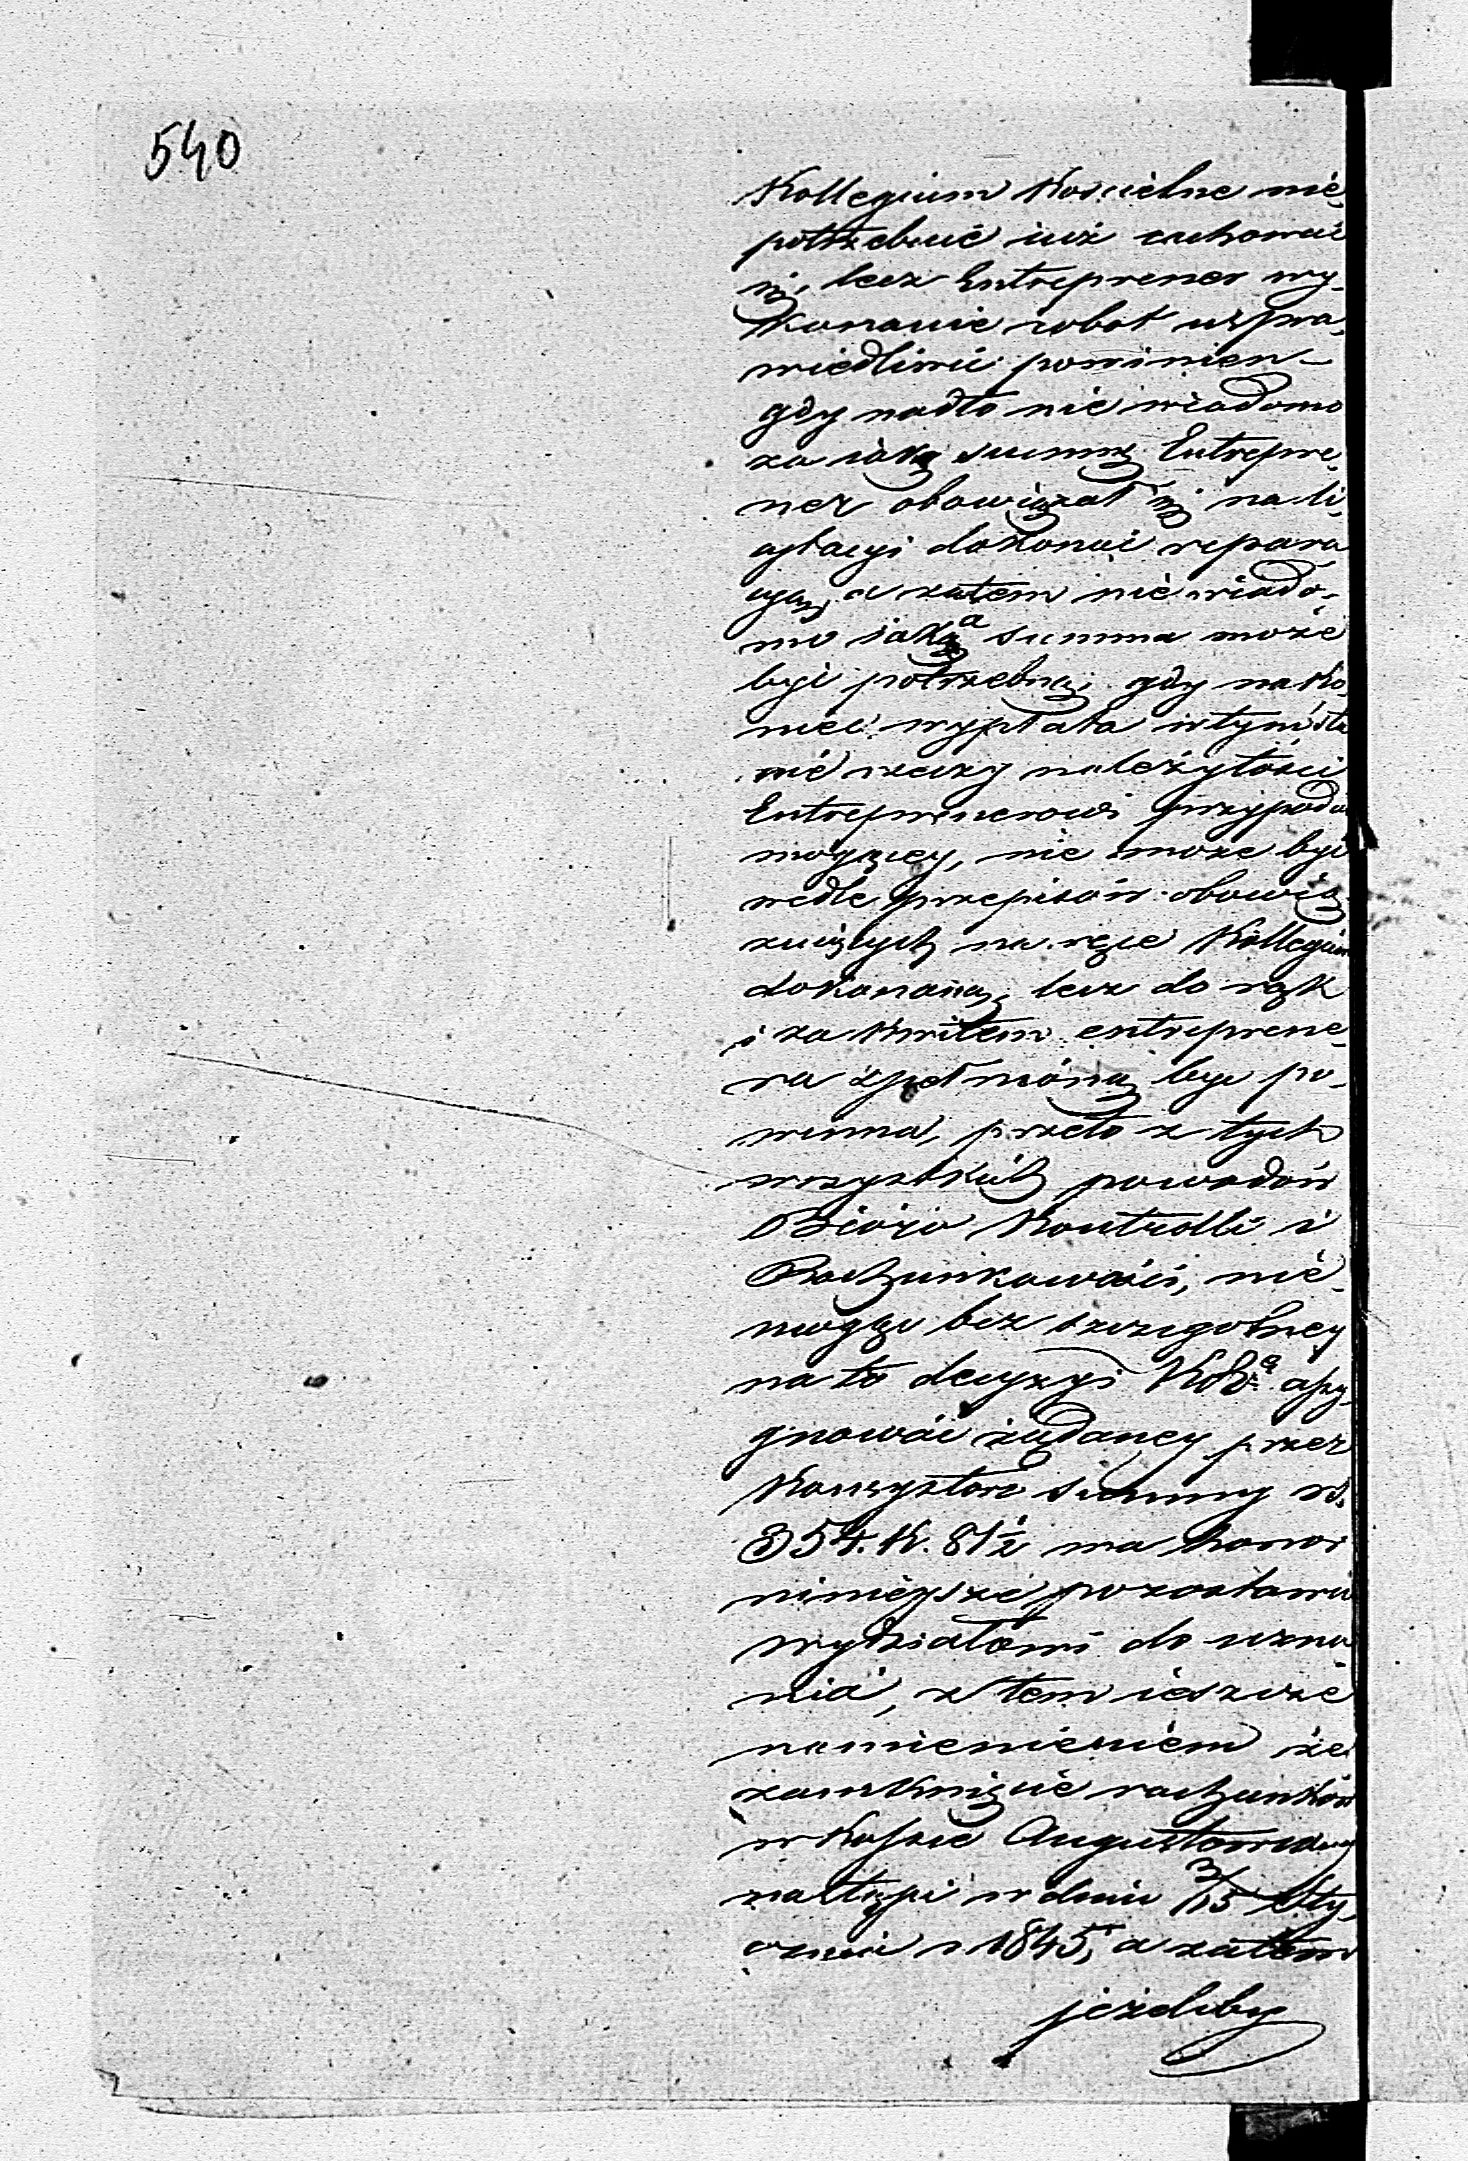 540
Kollegium Kościelne nie
potrzebuie iuż rachować
się, lecz Entreprener wy-
konanie robot uspra-
wiedliwić powinien –
gdy nadto nie wiadomo
za iaką summę Entrepre-
ner obowiązał się na li-
cytacyi dokonać repara
cyą, a zatem nie wiado-
mo jaka summa może
być potrzebną, gdy nako-
niec wypłata w tym sta
nie rzeczy należytości
Entreprenerowi przypada
mogącey, nie może być
wedle przepisów obowią-
zuiących na ręce Kollegium
dokonaną, lecz do rąk
i za kwitem entreprene-
ra spełnioną być po-
winna, przeto z tych
wszystkich powodów
Bióro Kontrolli i
Rachunkowości, nie-
mogąc bez szczegolney
na to decyzyi assy-
gnować żądaney przez
Konsystorz summy rs.
354. k. 81½ ma honor
ninieysze pozostawić
wydziałowi do uzna-
nia, z tem ieszcze
namienieniem że
zamknięcie rachunków
w Kassie Augustowskiey
nastąpi w dniu 3/15 Sty-
cznia r 1845, a zatem
jeżeliby